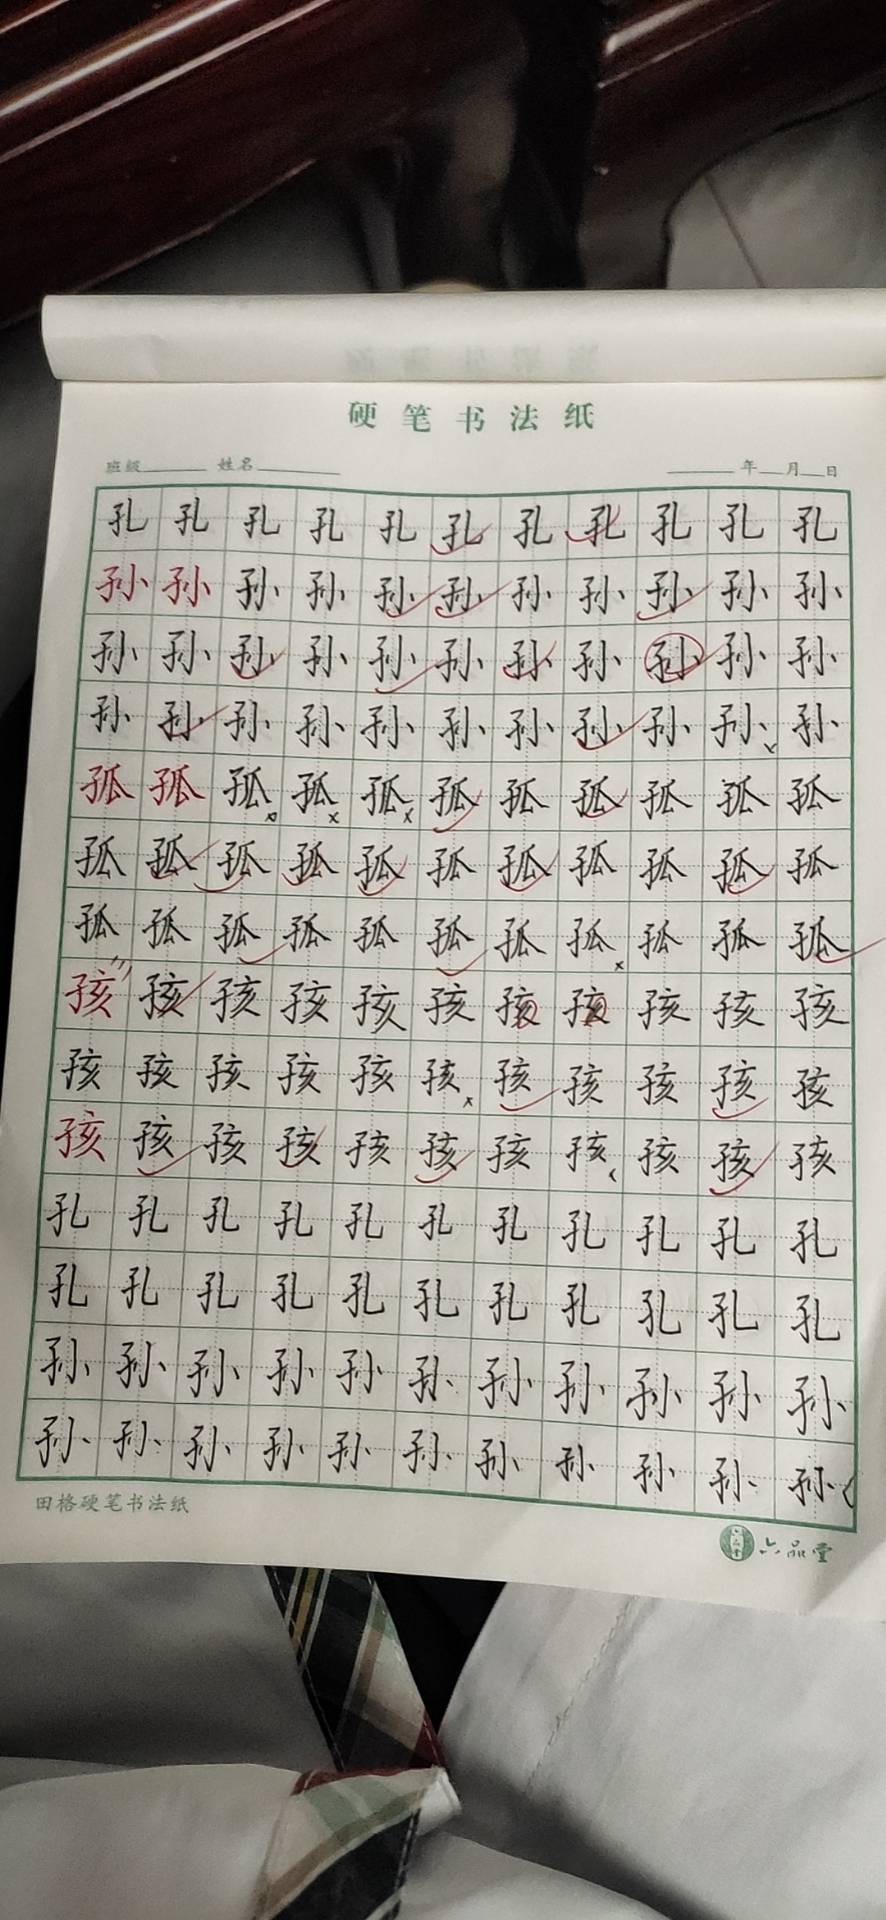 硬笔书法纸
班级 姓名 年 月 日
孔 孔 孔 孔 孔 孔 孔 孔 孔 孔 孔
孙 孙 孙 孙 孙 孙 孙 孙 孙 孙 孙
孙 孙 孙 孙 孙 孙 孙 孙 孙 孙 孙
孙 孙 孙 孙 孙 孙 孙 孙 孙 孙 孙
孤 孤 孤 孤 孤 孤 孤 孤 孤 孤 孤
孤 孤 孤 孤 孤 孤 孤 孤 孤 孤 孤
孤 孤 孤 孤 孤 孤 孤 孤 孤 孤 孤
孩 孩 孩 孩 孩 孩 孩 孩 孩 孩 孩
孩 孩 孩 孩 孩 孩 孩 孩 孩 孩 孩
孩 孩 孩 孩 孩 孩 孩 孩 孩 孩 孩
孔 孔 孔 孔 孔 孔 孔 孔 孔 孔 孔
孔 孔 孔 孔 孔 孔 孔 孔 孔 孔 孔
孙 孙 孙 孙 孙 孙 孙 孙 孙 孙 孙
孙 孙 孙 孙 孙 孙 孙 孙 孙 孙 孙
田格硬笔书法纸
六品堂